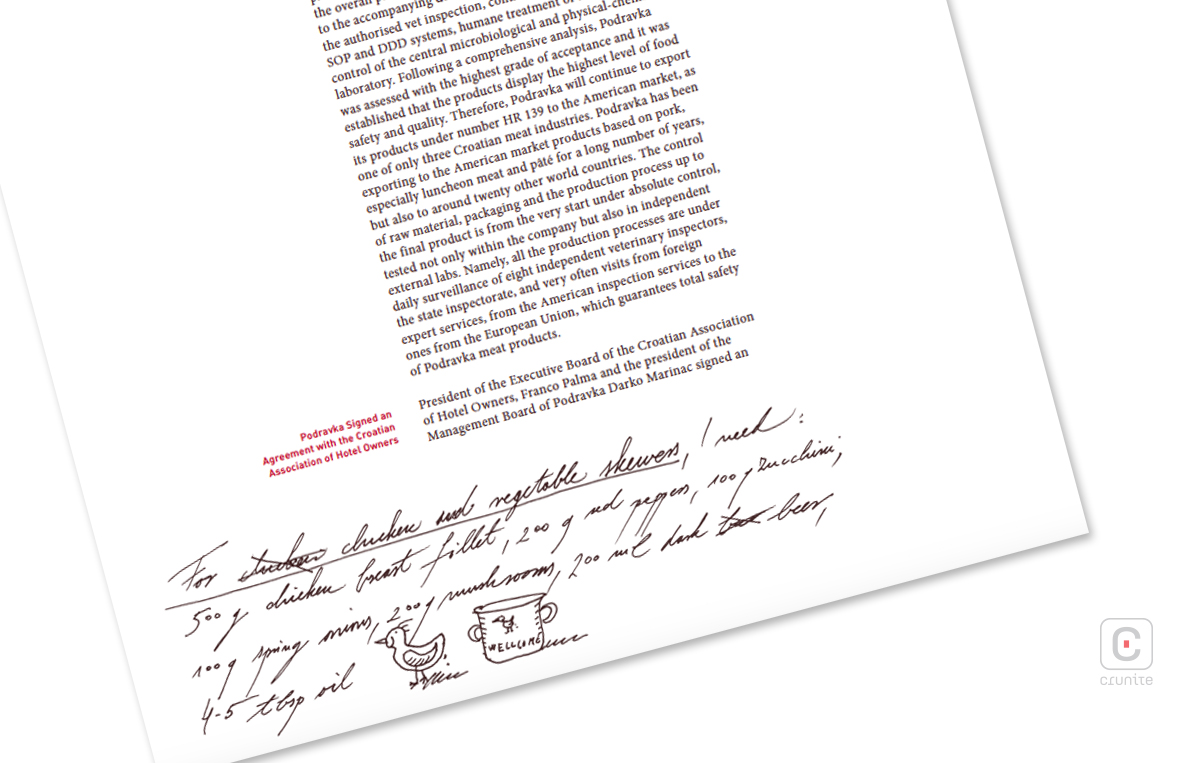 the overall
to the accompanying
the authorised vet inspection,
SOP and DDD systems, humane treatment of
control of the central microbiological and physical-chem
laboratory. Following a comprehensive analysis, Podravka
was assessed with the highest grade of acceptance and it was
established that the products display the highest level of food
safety and quality. Therefore, Podravka will continue to export
its products under number HR 139 to the American market, as
one of only three Croatian meat industries. Podravka has been
exporting to the American market products based on pork,
especially luncheon meat and pâté for a long number of years,
but also to around twenty other world countries. The control
of raw material, packaging and the production process up to
the final product is from the very start under absolute control,
tested not only within the company but also in independent
external labs. Namely, all the production processes are under
daily surveillance of eight independent veterinary inspectors,
the state inspectorate, and very often visits from foreign
expert services, from the American inspection services to the
ones from the European Union, which guarantees total safety
of Podravka meat products.
Podravka Signed an
Agreement with the Croatian
Association of Hotel Owners
President of the Executive Board of the Croatian Association
of Hotel Owners, Franco Palma and the president of the
Management Board of Podravka Darko Marinac signed an
For chicken and vegetable skewers, I need:
500 g chicken breast fillet, 200 g red peppers, 100 g zucchini,
100 g spring onions, 200 g mushrooms, 200 ml dark beer,
4-5 tbsp oil
WELLCOME
crunite